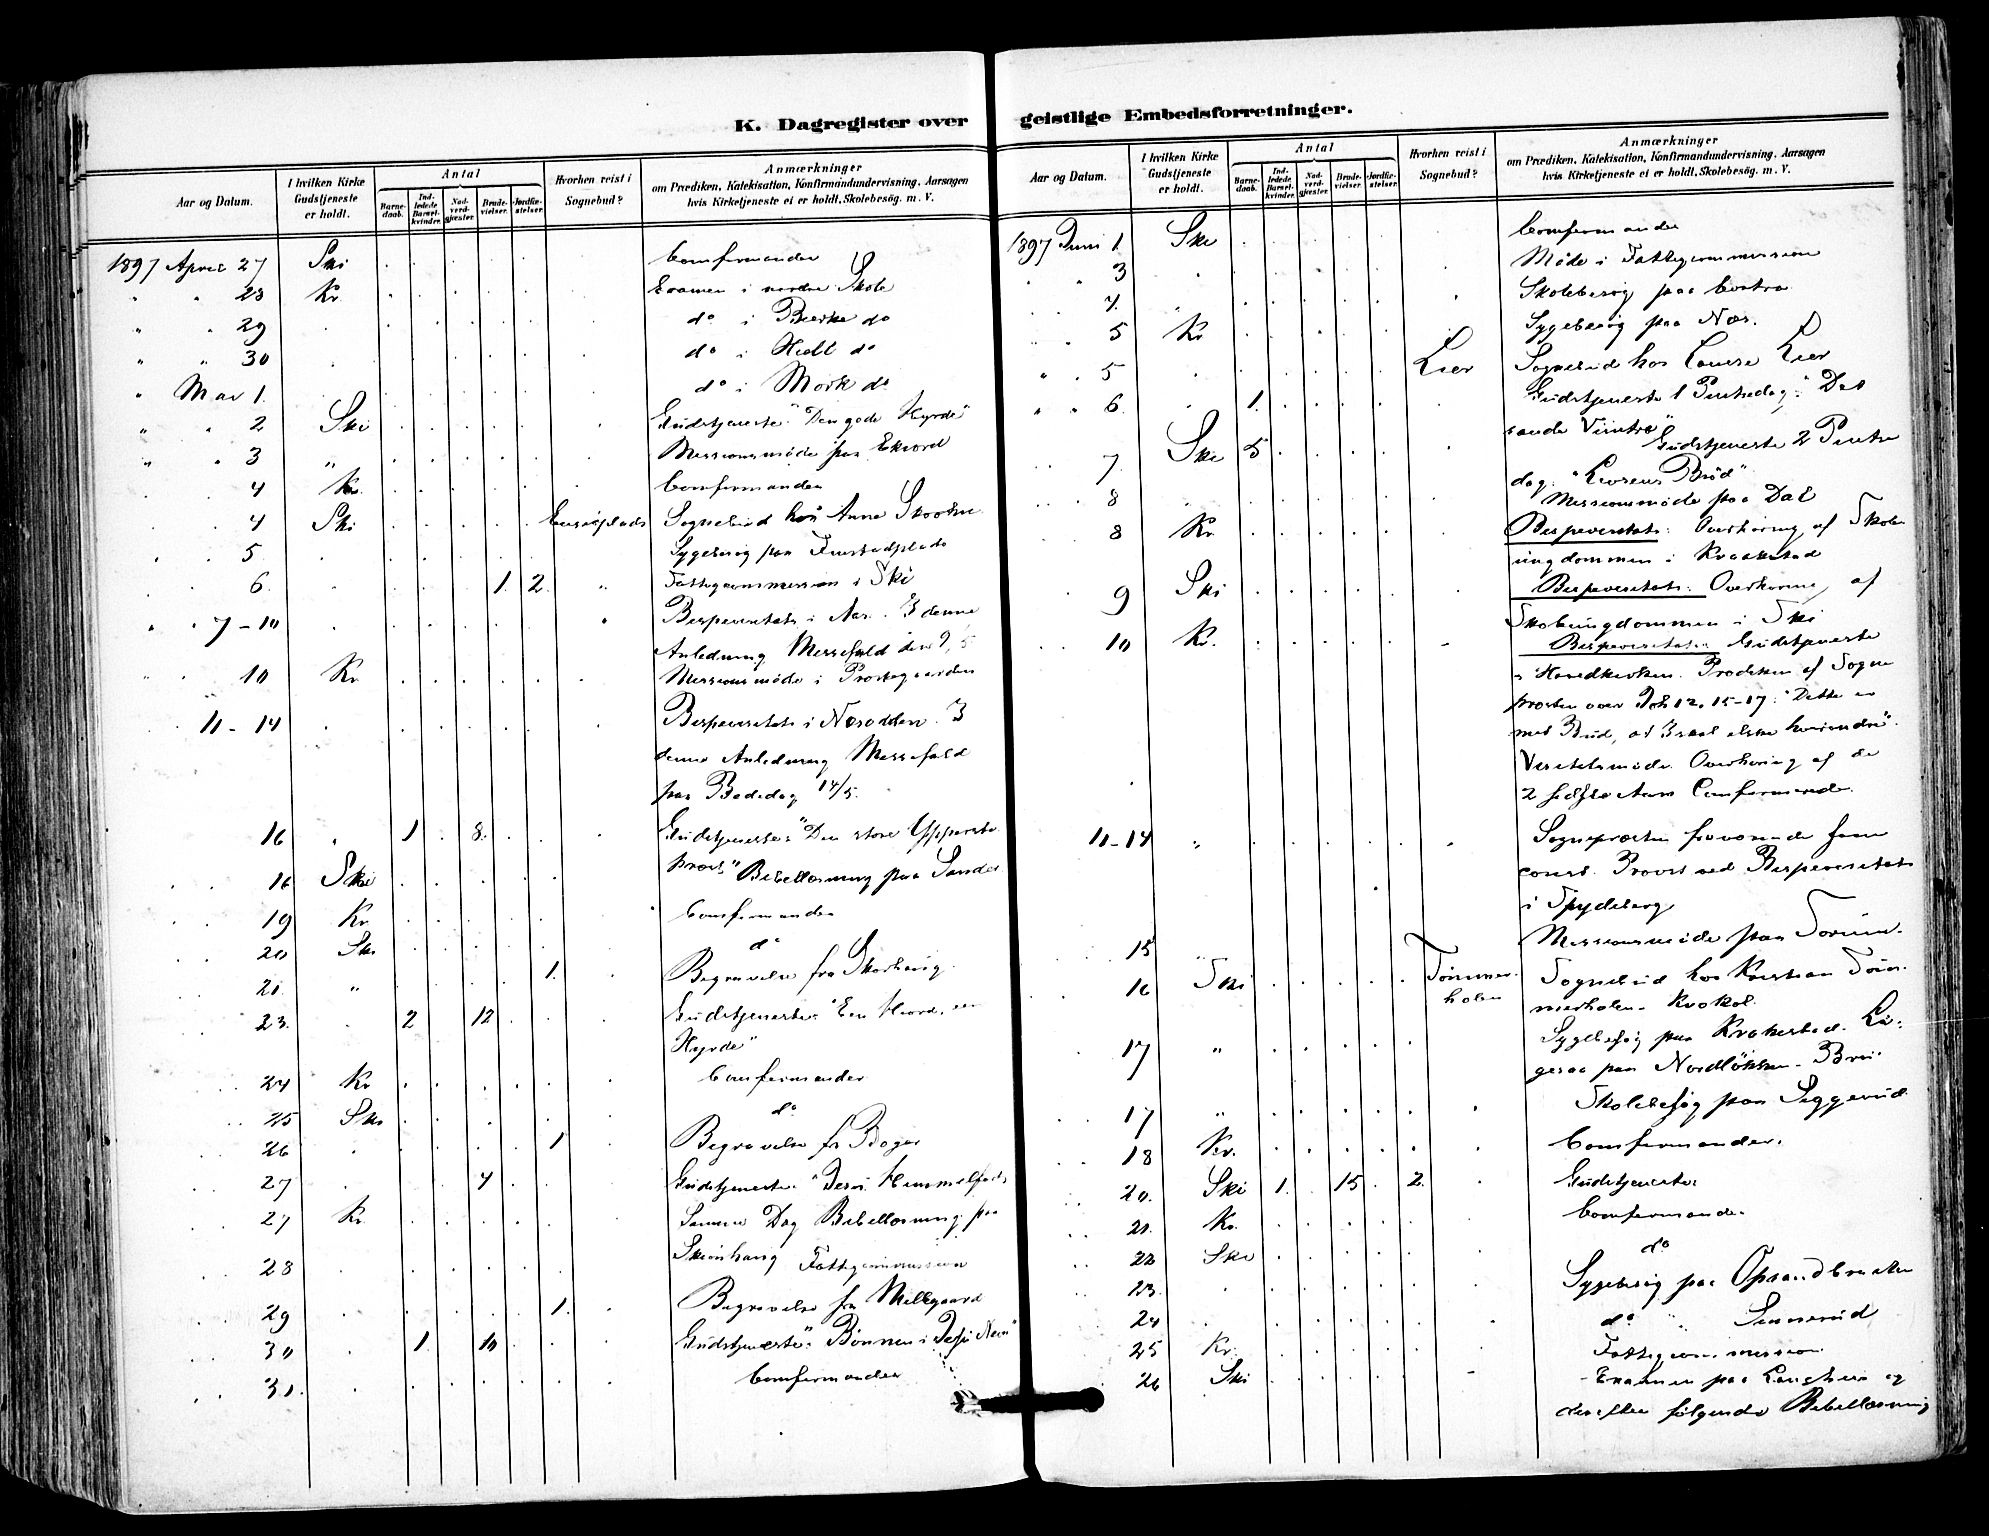 K. Dagregister over geistlige Embedsforretninger.
Aar og Datum.
I hvilken Kirke Gudstjeneste er holdt.
Antal
Barnedaab.
Indledede Barselkvinder.
Nadverdgjester.
Brudevielser.
Jordfæstelser.
Hvorhen reist i Sognebud?
Anmærkninger
om Prædiken, Katekisation, Konfirmandundervisning, Aarsagen
hvis Kirketjeneste ei er holdt, Skolebesög. m. V.
1897 April 27 Ski Comfirmander
" " 28 Kr Examen i nordre Skole
" " 29 do i do
" " 30 do i do
" Mai 1. do i Mork do
" " 2 Ski Gudstjeneste "Den gode Hyrde"
" " 3 " Missionsmöde paa
4 Kr. Comfirmander
4 Ski Sognebud hos Anne
5 Sygebesög paa
6. 1. 2. Fattigcommission i Ski
" " 7-10 Bispevisitats i Aas. I denne
Anledning Messefald den 9/5
10 Kr. Missionsmöde i Prostegaarden
11-14 Bispevisitats i Næsodden. I
denne Anledning Messefald
paa Bededag 14/5.
16 " 1 8. Gudstjeneste: "Den store Ypperste
Præst"
16 Ski Bibellæsning paa Sander
19 Kr Comfirmander
20 Ski do
21. " 1. Begravelse fra
23. 2 12 Gudstjeneste: "Een Hiord, een
Hyrde"
24 Kr Comfirmander
25 Ski do
26 1 Begravelse fr
27 4 Gudstjeneste. "Jesu Himmelfart"
27 Kr. Samme Dag Bibellæsning paa
28 Fattigcommission
29 1. Begravelse fra
30 1. 10 Gudstjeneste: "Bönnen i Jesu Navn"
31. Comfirmander
Aar og Datum.
I hvilken Kirke Gudstjeneste er holdt.
Antal
Barnedaab.
Indledede Barselkvinder.
Nadverdgjester.
Brudevielser.
Jordfæstelser.
Hvorhen reist i Sognebud?
Anmærkninger
om Prædiken, Katekisation, Konfirmandundervisning, Aarsagen
hvis Kirketjeneste ei er holdt, Skolebesög. m. V.
1897 Juni 1. Ski Comfirmander
" " 3 Möde i Fattigcommission
4. " Skolebesög paa
5 Kr Sygebesög paa Nær.
" " 5 Lier Sognebud hos Lier
" " 6. 1. Gudstjeneste 1 Pintsedag: "Det
sande Viintræ"
7. Ski 5 Gudstjeneste 2 Pintse
dag. "Livsens Bröd"
8 Missionsmöde paa Dal
8 Kr. Bispevisitats: Overhöring af Skole
ungdommen i Kraakstad
9 Ski Bispevisitats: Overhöring af
Skoleungdommen i Ski
10 Kr. Bispevisitats: Gudstjeneste
i Hovedkirken. Prædiken af Sogne
præsten over Joh 12, 15-17: "Dette er
mit Bud, at I skal elske hverandre".
Visitatsmöde. Overhöring af de
2 sidste Aars Comfirmander.
11-14 " Sognepræsten fraværende som
const. Provst ved Bispevisitats
i Spydeberg
15 Missionsmöde paa
16 Ski Tömmerholen Sognebud hos Kristian Töm-
merholen.
17 " Sygebesög paa Krakestad. Li-
gesaa paa
17 " Skolebesög paa Siggerud
18 Kr. Comfirmander.
20. Ski 1. 15 2. Gudstjeneste
21. Kr. Comfirmander
22 Ski do
23. Sygebesög paa
24 do
25 Kr. Fattigcommission
26 Ski Examen paa Langhus og
derefter fölgende Bibellæsning